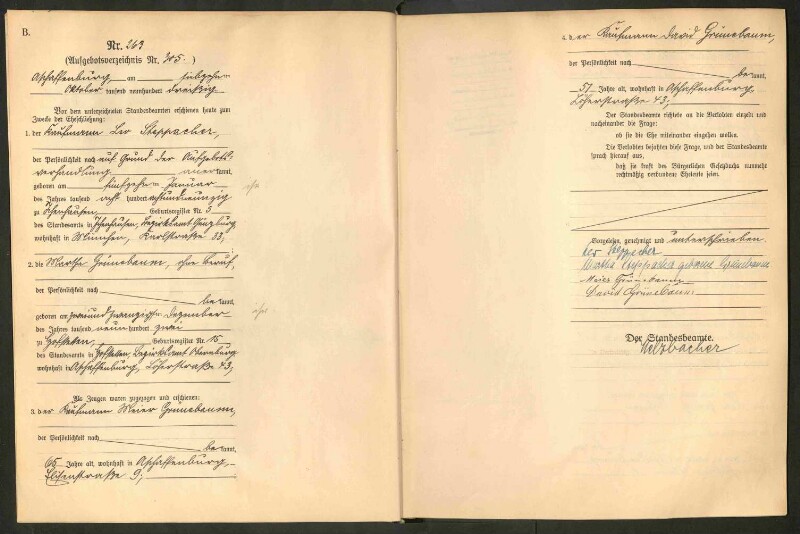 B.
Nr. 263
(Aufgebotsverzeichnis Nr. 305.)
Aschaffenburg, am siebzehn
Oktober tausend neunhundert dreißig
Vor dem unterzeichneten Standesbeamten erschienen heute zum
Zwecke der Eheschließung:
1. der Kaufmann Leo Steppacher,
der Persönlichkeit nach auf Grund der Aufgebots-
verhandlung anerkannt,
geboren am fünfzehn Januar
des Jahres tausend acht hundert achtundneunzig
zu Ichenhausen, Geburtsregister Nr. 3
des Standesamts in Ichenhausen, Bezirksamt Günzburg,
wohnhaft in München, Karlstraße 33,
2. die Martha Grünebaum, ohne Beruf,
der Persönlichkeit nach
bekannt,
geboren am zweiundzwanzigsten Dezember
des Jahres tausend neun hundert zwei
zu Hofstetten, Geburtsregister Nr. 15
des Standesamts in Hofstetten, Bezirksamt Obernburg
wohnhaft in Aschaffenburg, Löherstraße 43,
Als Zeugen waren zugezogen und erschienen:
3. der Kaufmann Meier Grünebaum,
der Persönlichkeit nach
bekannt,
65 Jahre alt, wohnhaft in Aschaffenburg,
Elisenstraße 9;
4. der Kaufmann David Grünebaum,
der Persönlichkeit nach
bekannt,
51 Jahre alt, wohnhaft in Aschaffenburg,
Löherstraße 43,
Der Standesbeamte richtete an die Verlobten einzeln und
nacheinander die Frage:
ob sie die Ehe miteinander eingehen wollen.
Die Verlobten bejahten diese Frage, und der Standesbeamte
sprach hierauf aus,
daß sie kraft des Bürgerlichen Gesetzbuchs nunmehr
rechtmäßig verbundene Eheleute seien.
Vorgelesen, genehmigt und unterschrieben
Leo Steppacher
Martha Steppacher geborene Grünebaum
Meier Grünebaum
David Grünebaum.
Der Standesbeamte.